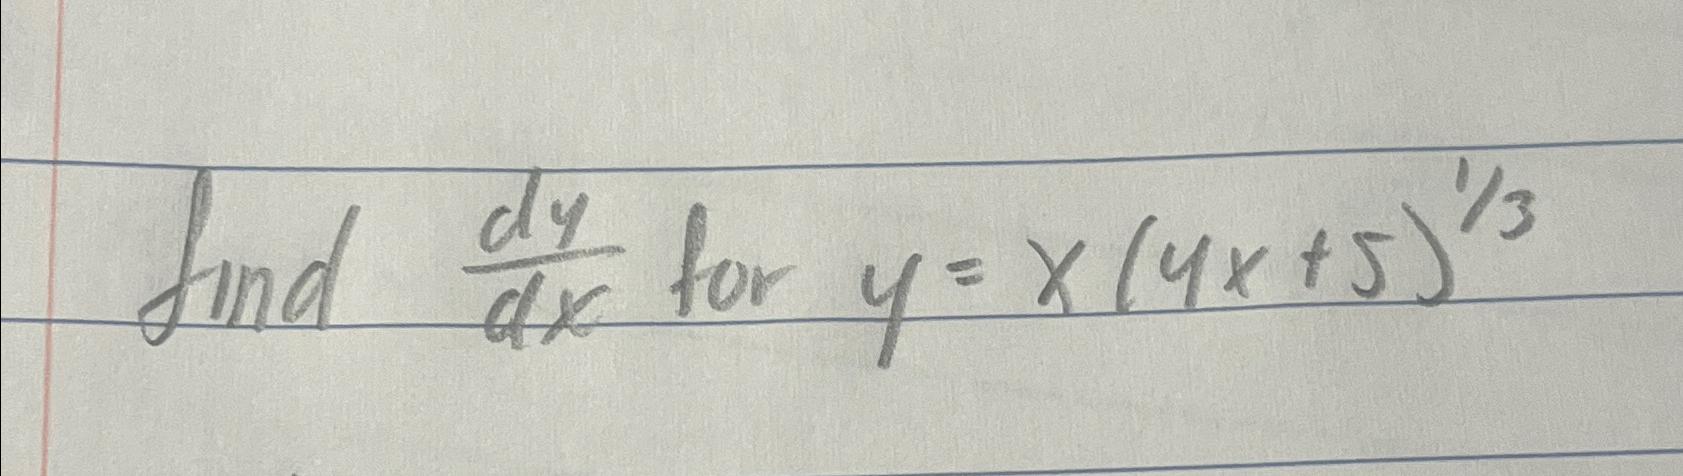 find dy/dx for y = x(4x+5)^1/3